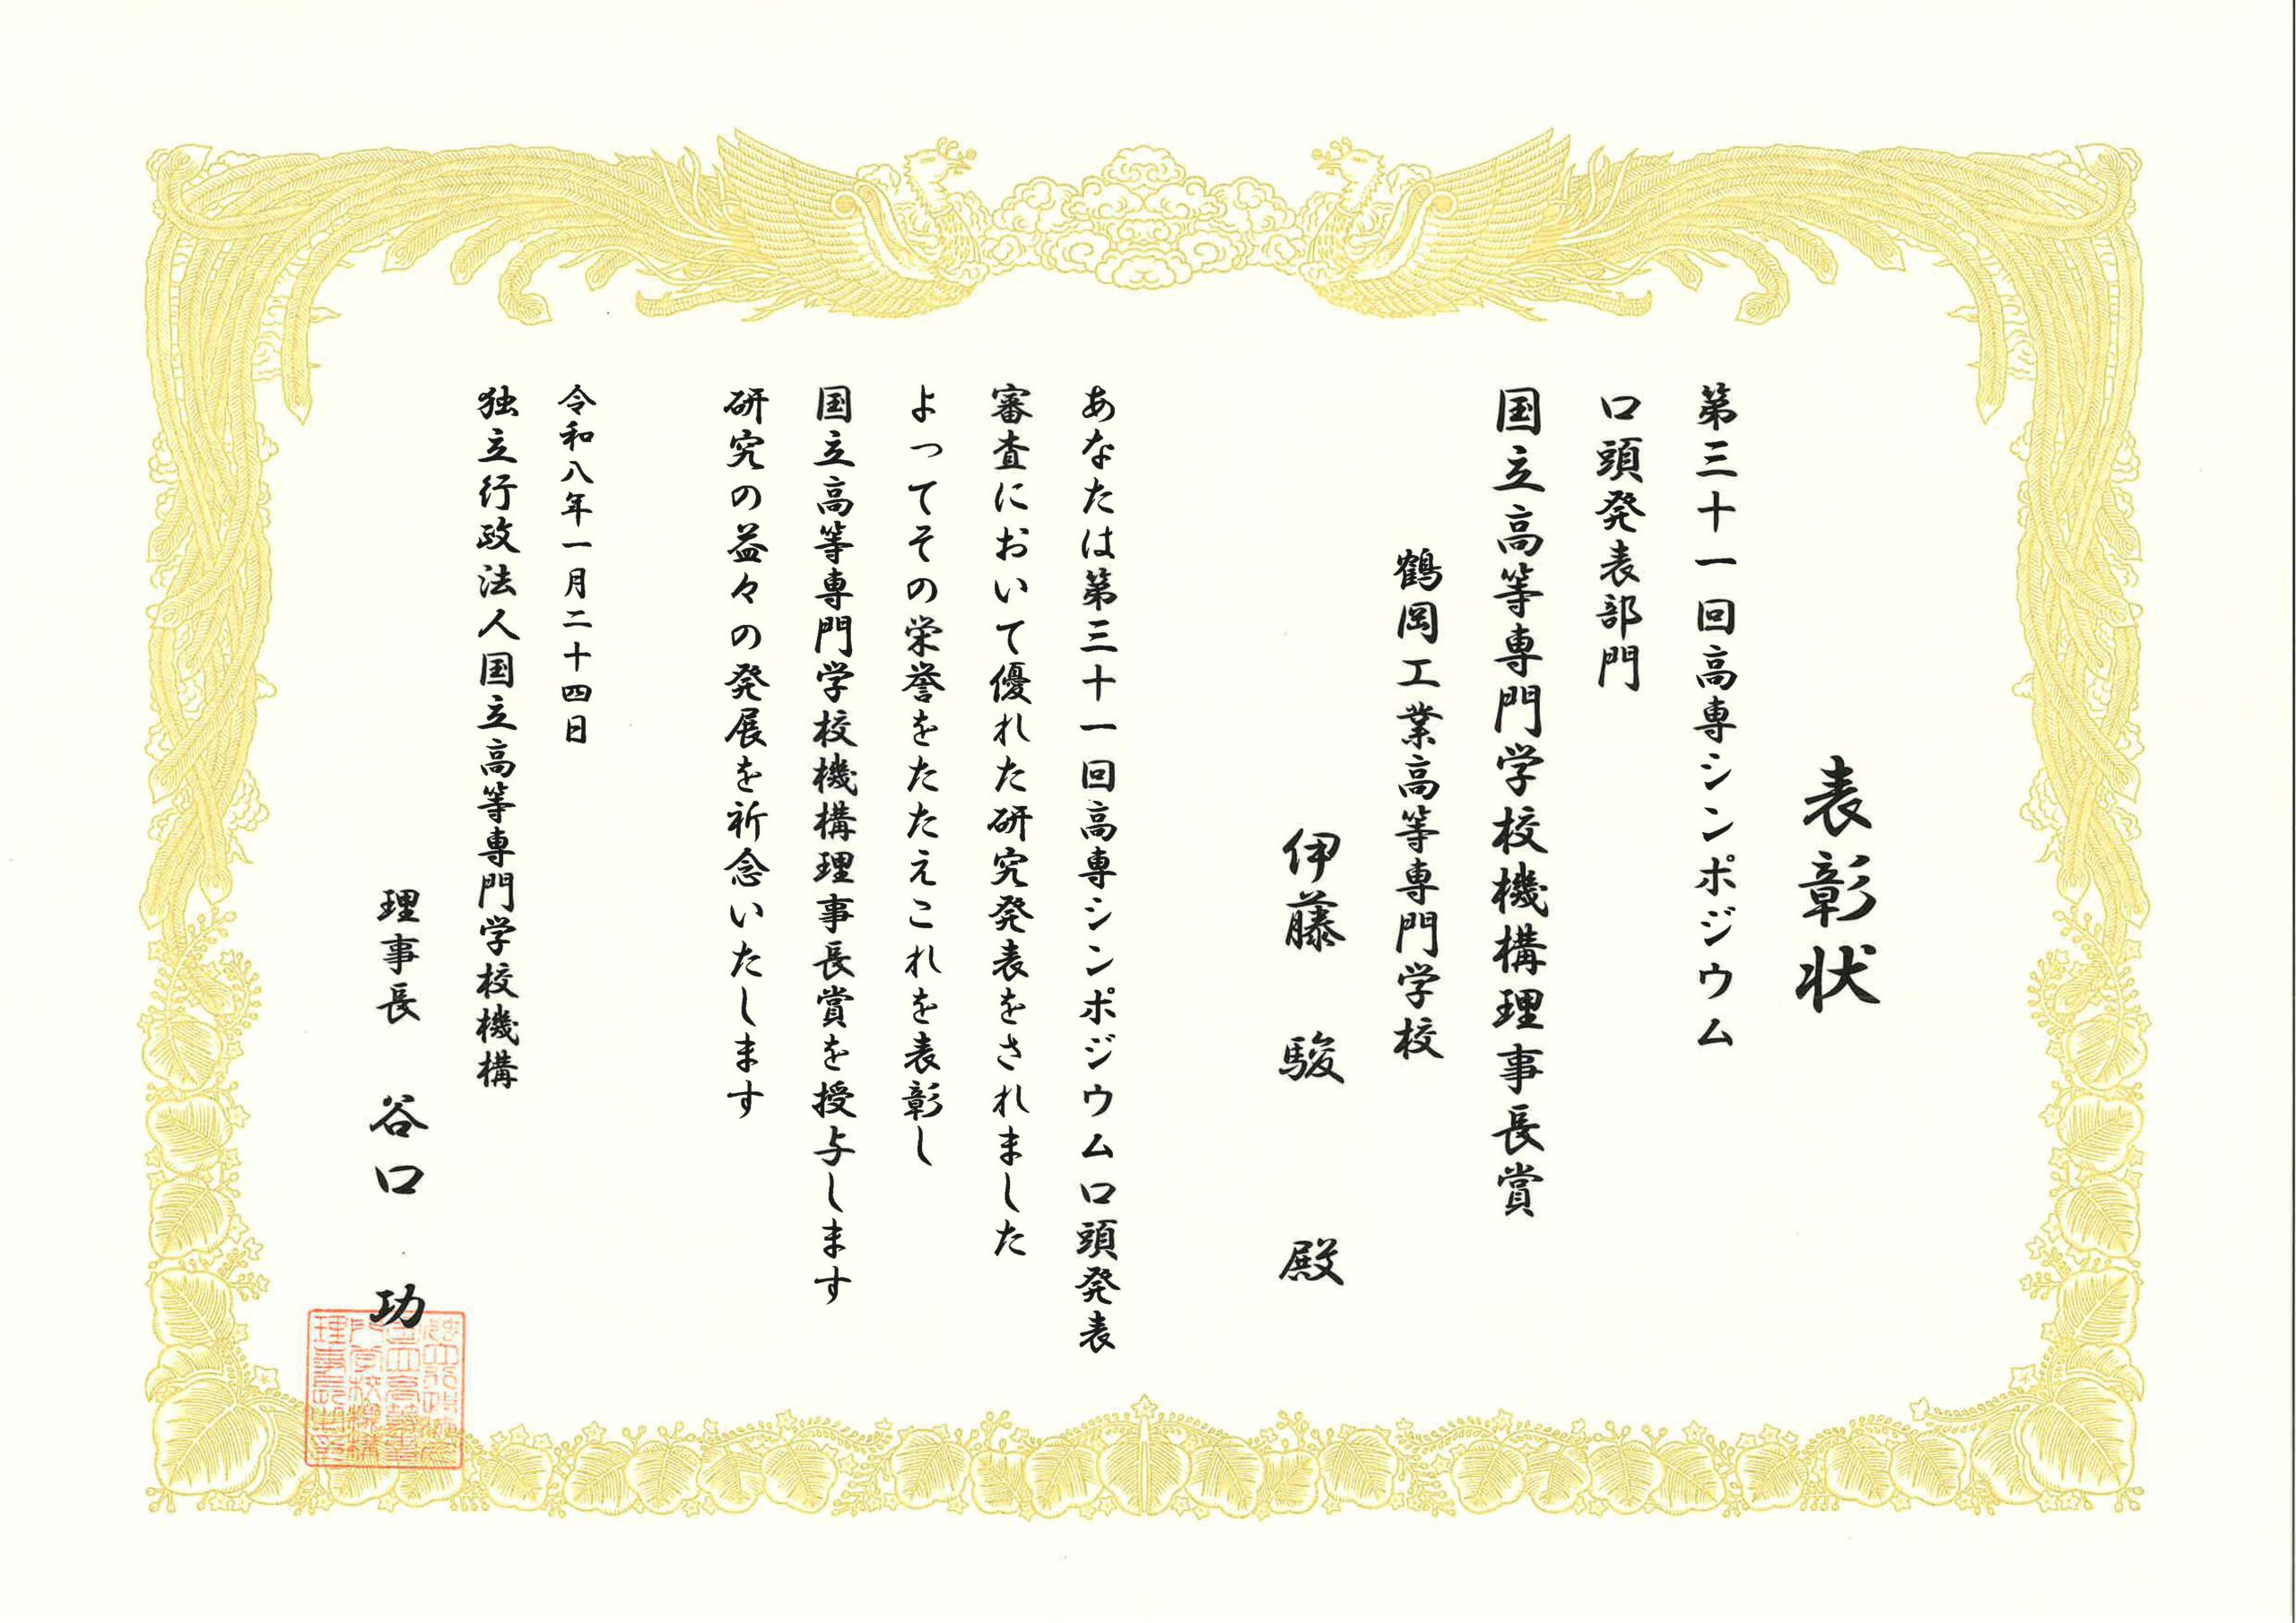 表彰状
第三十一回高専シンポジウム
口頭発表部門
国立高等専門学校機構理事長賞
鶴岡工業高等専門学校
伊藤 駿 殿
あなたは第三十一回高専シンポジウム口頭発表
審査において優れた研究発表をされました
よってその栄誉をたたえこれを表彰し
国立高等専門学校機構理事長賞を授与します
研究の益々の発展を祈念いたします
令和八年一月二十四日
独立行政法人国立高等専門学校機構
理事長 谷口 功